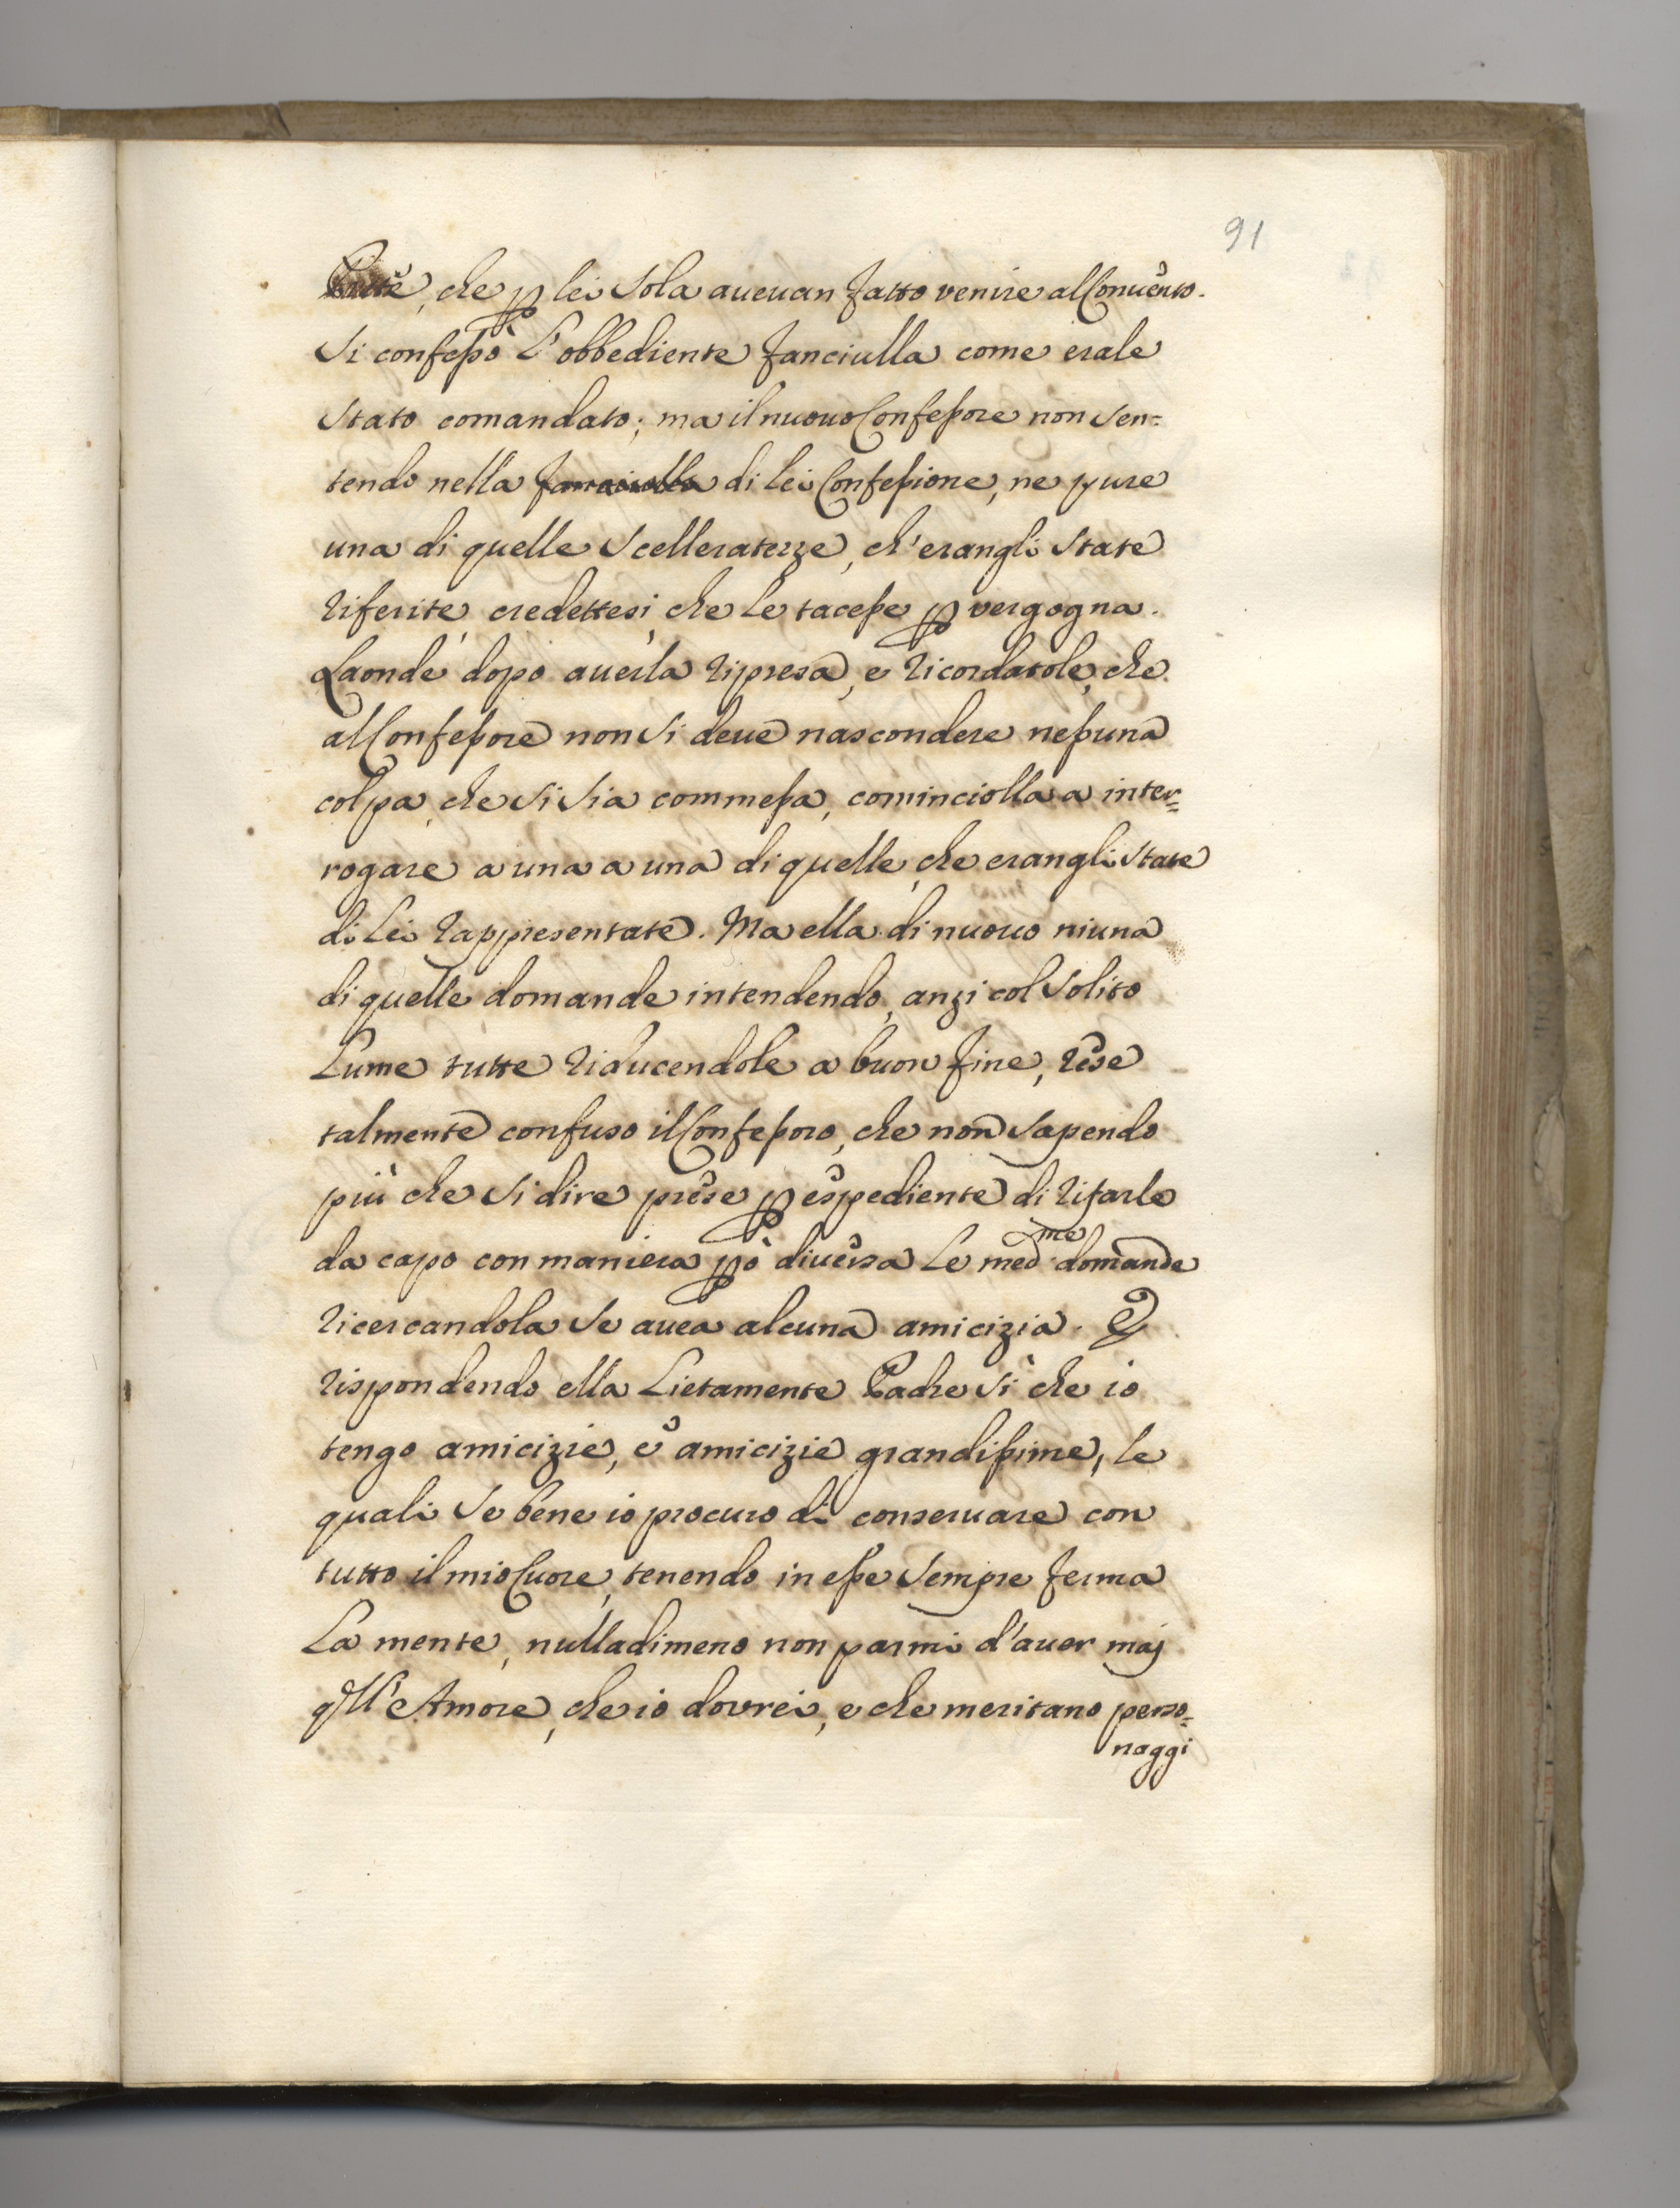 91
che p lei sola aueuan fatto venire al Conuento.
Si confessò l'obbediente fanciulla come erale
stato comandato; ma il nuouo Confessore non sen=
tendo nella fanciulla di lei Confessione, ne pure
una di quelle scelleratezze, ch'erangli state
riferite, credettesi, che le tacesse p vergogna.
Laonde dopo auerla ripresa, e ricordatole, che
al Confessore non si deue nascondere nessuna
colpa, che si sia commessa, cominciolla a inter=
rogare a una a una di quelle, che erangli state
di lei rappresentate. Ma ella di nuouo niuna
di quelle domande intendendo, anzi col solito
lume tutte riducendole a buon fine, rese
talmente confuso il Confessoro, che non sapendo
più che si dire prese p espediente di rifarle
da capo con maniera pò diuersa le med.me domande
ricercandola se auea alcuna amicizia. E
rispondendo ella lietamente Padre sì che io
tengo amicizie, e amicizie grandissime, le
quali se bene io procuro di conseruare con
tutto il mio Cuore, tenendo in esse sempre ferma
la mente, nulladimeno non parmi d'auer maj
qll'Amore, che io dovrei, e che meritano perso=
naggi